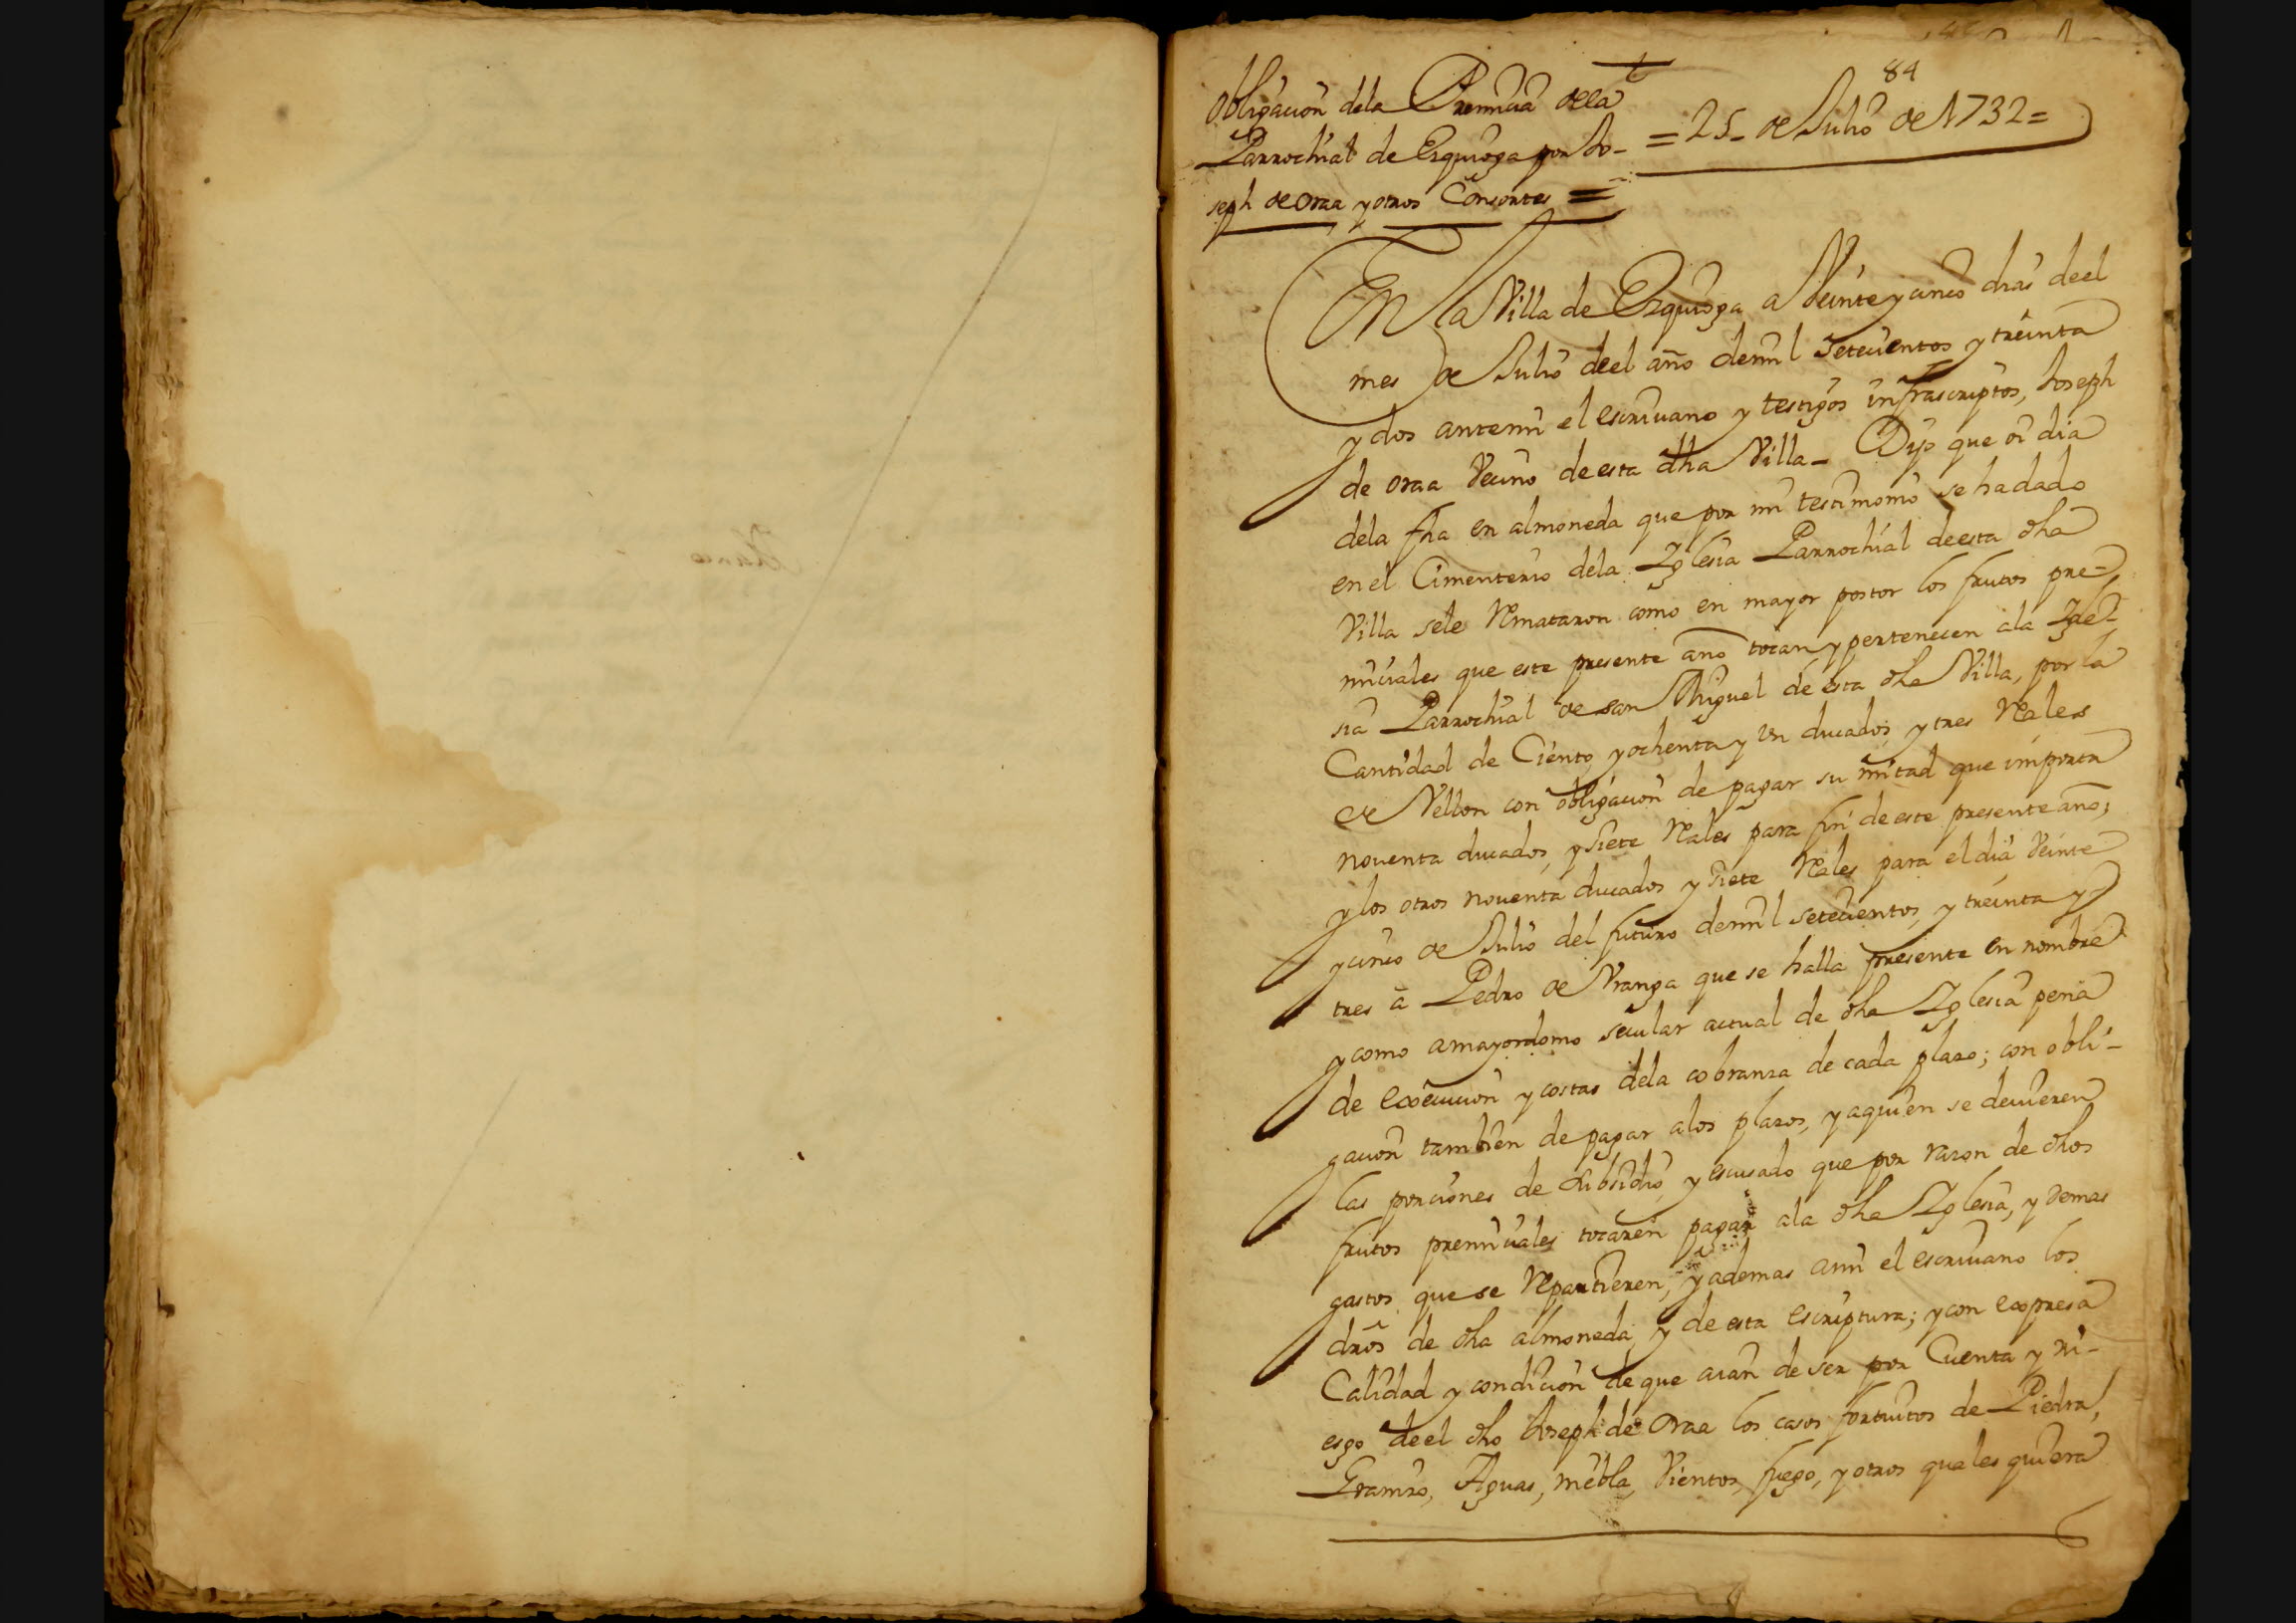 84
Obligacion dela Primicia dela
Parrochial de Ezquioga por Jo-
seph de Oraa y otros Consortes =
= 25 - de Julio de 1732 =
En la Villa de Ezquioga a Veinte y cinco dias deel
mes de Julio deel año demil setecientos y treinta
y dos antemi el escriuano y testigos infrascriptos, Joseph
de oraa Vecino de esta dha Villa - Dijo que oi dia
dela fha en almoneda que por mi testimonio se ha dado
en el Cimenterio dela Iglesia Parrochial deesta dha
Villa sele Remataron como en mayor postor los frutos pre-
miciales que este presente año tocan y pertenecen ala Igle-
sia Parrochial de san Miguel de esta dha Villa, por la
Cantidad de Ciento y ochenta y un ducados y tres Reales
de Vellon con obligacion de pagar su mitad que importa
noventa ducados, y siete Reales para fin de este presente año;
y los otros noventa ducados y siete Reales para el dia Veinte
y cinco de Julio del futuro demil setecientos, y treinta y
tres a Pedro de Vranga que se halla presente en nombre
y como amayordomo secular actual de dha Iglesia pena
de execucion y costas dela cobranza de cada plazo; con obli-
gacion tambien de pagar alos plazos, y aquien se deuieren
las porciones de subsidio, y escusado que por razon de dhos
frutos premiciales tocaren pagar ala dha Iglesia, y demas
gastos que se Repartieren, y ademas ami el escriuano los
dros de dha almoneda y de esta escriptura; y con expresa
Calidad y condicion de que aian de ser por Cuenta y ri-
esgo deel dho Joseph de Oraa los casos fortuitos de Piedra,
Granizo, Aguas, niebla, Vientos, fuego, y otros quales quiera